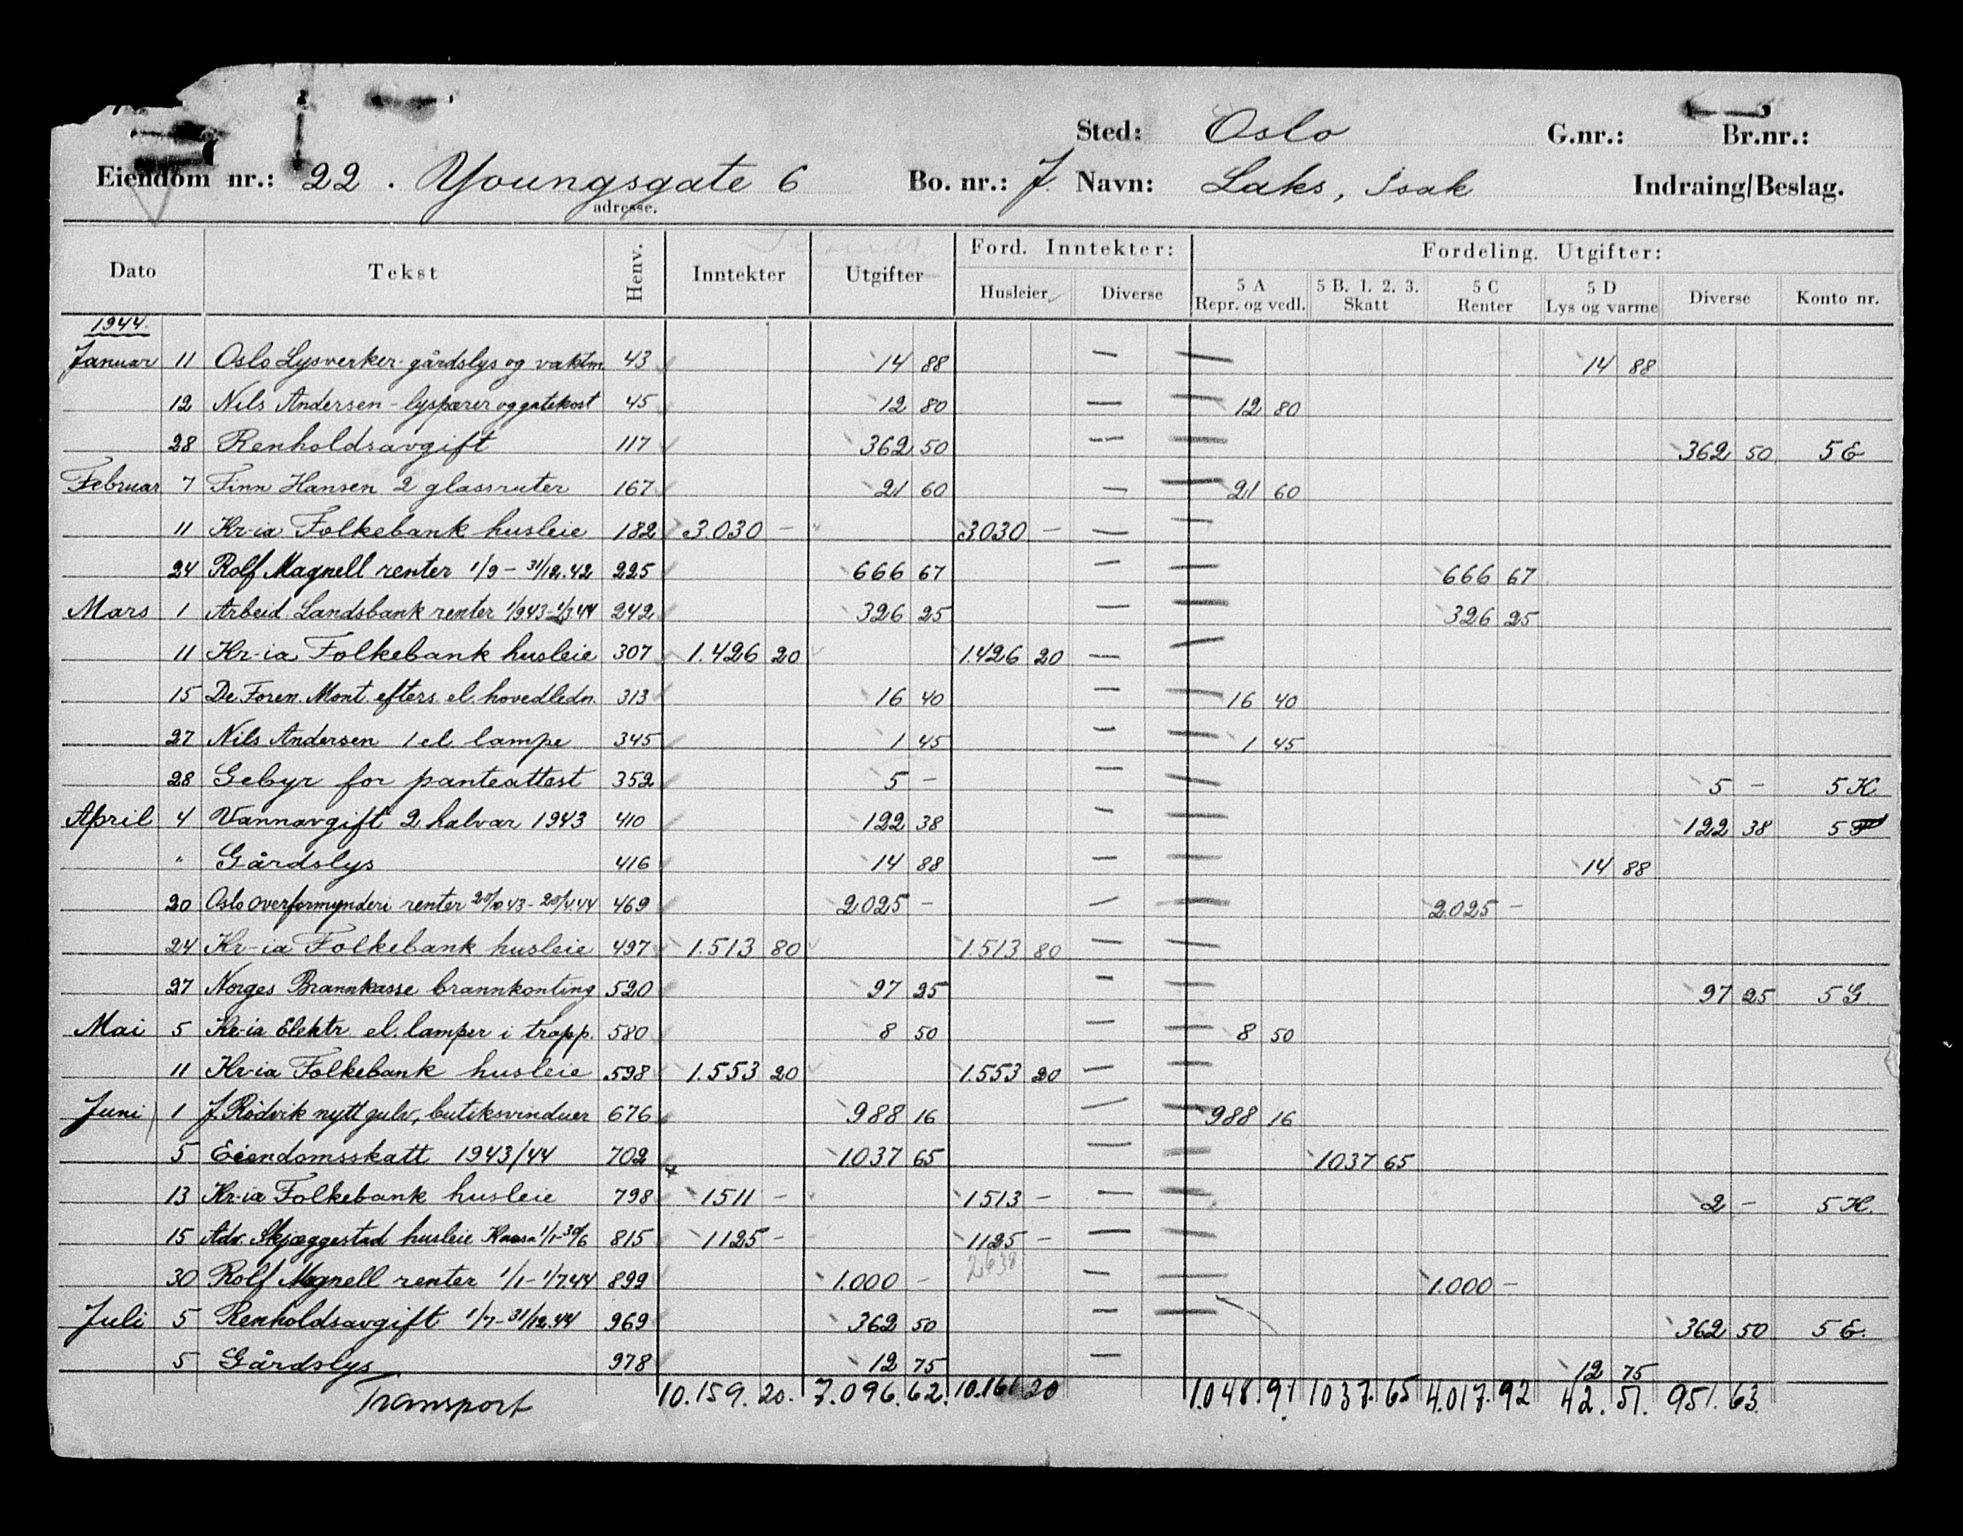 Sted: Oslo G.nr.: Br.nr.:
Eiendom nr.: 22. Youngsgate 6 Bo. nr.: J Navn: Laks, Isak Indraing/Beslag.
adresse.
Ford. Inntekter: Fordeling. Utgifter:
Dato Tekst Henv. Inntekter Utgifter Husleier Diverse 5 A Repr. og vedl. 5 B. 1. 2. 3. Skatt 5 C Renter 5 D Lys og varme Diverse Konto nr.
1944.
Januar 11 Oslo Lysverker - gårdslys og vaktm. 43 14 88 — — 14 88
12 Nils Andersen - lyspærer og gatekost 45 12 80 — — 12 80
28 Renholdsavgift 117 362 50 — — 362 50 5 E
Februar 7 Finn Hansen 2 glassruter 167 21 60 — — 21 60
11 Kr-ia Folkebank husleie 182 3.030 — 3.030 — — —
24 Rolf Magnell renter 1/9 - 31/12.42 225 666 67 — — 666 67
Mars 1 Arbeid. Landsbank renter 1/9.43 - 1/3.44 242 326 25 — — 326 25
11 Kr-ia Folkebank husleie 307 1.426 20 1.426 20 — —
15 De Foren. Mont. efters. el. hovedledn. 313 16 40 — — 16 40
27 Nils Andersen 1 el. lampe 345 1 45 — — 1 45
28 Gebyr for panteattest 352 5 — — — 5 — 5 K
April 4 Vannavgift 2. halvår 1943 410 122 38 — — 122 38 5 F
" Gårdslys 416 14 88 — — 14 88
20 Oslo overformynderi renter 20/10 43 - 20/4.44 469 2.025 — — — 2.025 —
24 Kr-ia Folkebank husleie 497 1.513 80 1.513 80 — —
27 Norges Brannkasse brannkonting 520 97 25 — — 97 25 5 G
Mai 5 Kr-ia Elektr. el. lamper i trapp. 580 8 50 — — 8 50
11 Kr-ia Folkebank husleie 598 1.553 20 1.553 20 — —
Juni 1 J. Rödvik nytt gulv, butiksvinduer 676 988 16 — — 988 16
5 Eiendomsskatt 1943/44 702 1.037 65 — — 1037 65
13 Kr-ia Folkebank husleie 798 1511 — 1513 — — — 2 — 5 K.
15 Adv. Skjæggestad husleie 1/1-30/6 815 1125 — 1125 — — —
2638
30 Rolf Magnell renter 1/1 - 1/7.44 899 1.000 — — — 1.000 —
Juli 5 Renholdsavgift 1/7 - 31/12.44 969 362 50 — — 362 50 5 E.
5 Gårdslys 978 12 75 — 12 75
Transport 10.159.20. 7.096.62. 10.161 20 1.048.91 1037.65 4.017.92 42.51. 951.63.